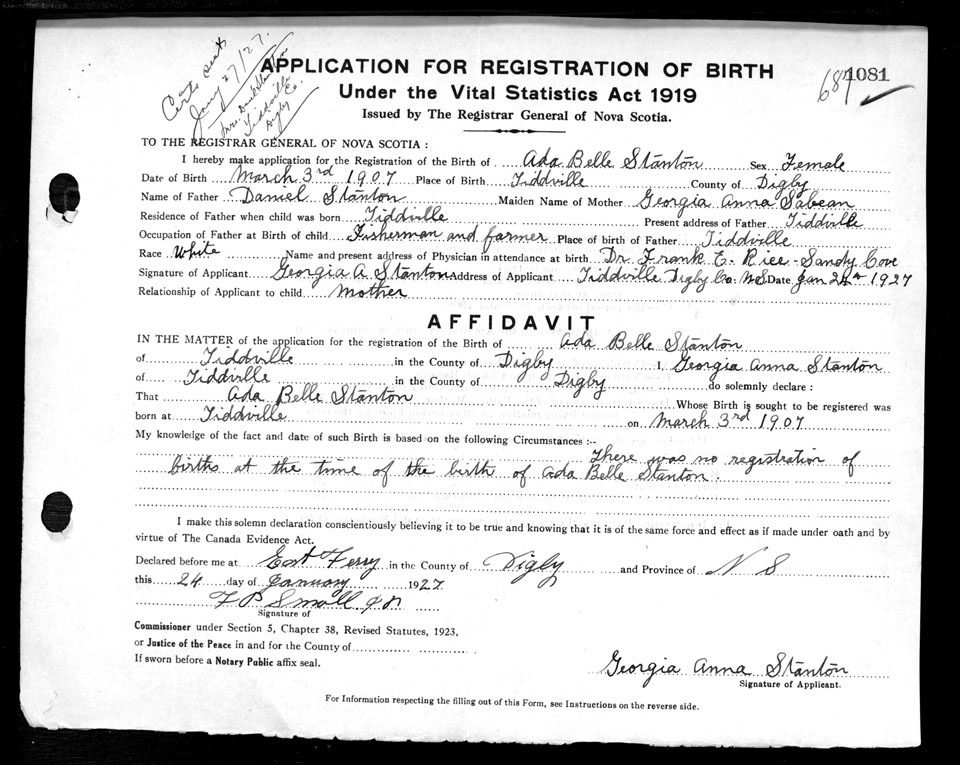 Certs sent
Jany 27/27.
Mrs. Stanton
Tiddville
Digby Co.
APPLICATION FOR REGISTRATION OF BIRTH
687 1081
Under the Vital Statistics Act 1919
Issued by The Registrar General of Nova Scotia.
TO THE REGISTRAR GENERAL OF NOVA SCOTIA :
I hereby make application for the Registration of the Birth of Ada Belle Stanton Sex Female
Date of Birth March 3rd 1907 Place of Birth Tiddville County of Digby
Name of Father Daniel Stanton Maiden Name of Mother Georgia Anna Sabean
Residence of Father when child was born Tiddville Present address of Father Tiddville
Occupation of Father at Birth of child Fisherman and farmer Place of birth of Father Tiddville
Race White Name and present address of Physician in attendance at birth Dr. Frank E. Rice - Sandy Cove
Signature of Applicant Georgia A Stanton Address of Applicant Tiddville Digby Co. N.S Date Jan 24th 1927
Relationship of Applicant to child Mother
AFFIDAVIT
IN THE MATTER of the application for the registration of the Birth of Ada Belle Stanton
of Tiddville in the County of Digby I, Georgia Anna Stanton
of Tiddville in the County of Digby do solemnly declare :
That Ada Belle Stanton Whose Birth is sought to be registered was
born at Tiddville on March 3rd 1907
My knowledge of the fact and date of such Birth is based on the following Circumstances :--
There was no registration of
births at the time of the birth of Ada Belle Stanton.
I make this solemn declaration conscientiously believing it to be true and knowing that it is of the same force and effect as if made under oath and by
virtue of The Canada Evidence Act.
Declared before me at East Ferry in the County of Digby and Province of N S
this 24 day of January 1927
F P Small J P
Signature of
Commissioner under Section 5, Chapter 38, Revised Statutes, 1923,
or Justice of the Peace in and for the County of
If sworn before a Notary Public affix seal.
Georgia Anna Stanton
Signature of Applicant.
For Information respecting the filling out of this Form, see Instructions on the reverse side.